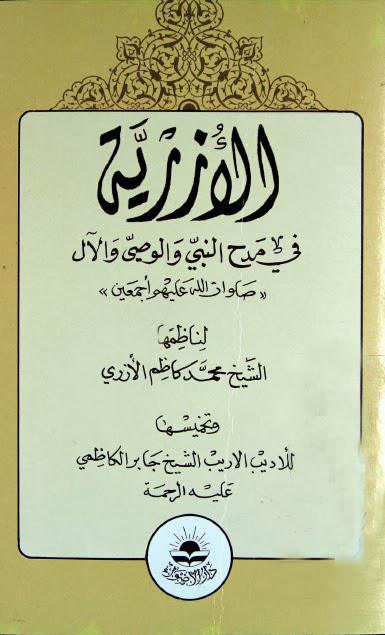 الأُزريَّة
في مَدح النبيّ وَالوصيّ وَالآل
«صلوات الله عَليهم أجمَعين»
لِناظِمها
الشَّيخ محمَّد كاظِم الأزري
وتخميسها
للأديب الاريب الشيخ جابر الكاظمي
عليْه الرحمَة
دار الأضواء